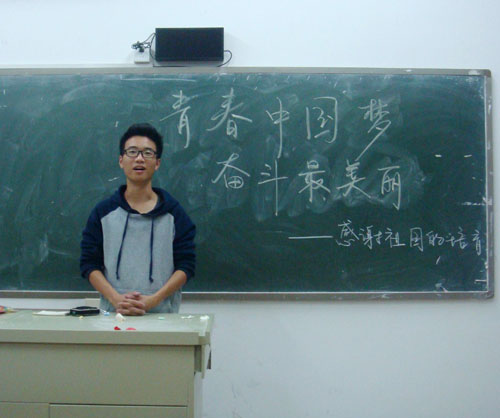 青春中国梦
奋斗最美丽
——感谢祖国的培育